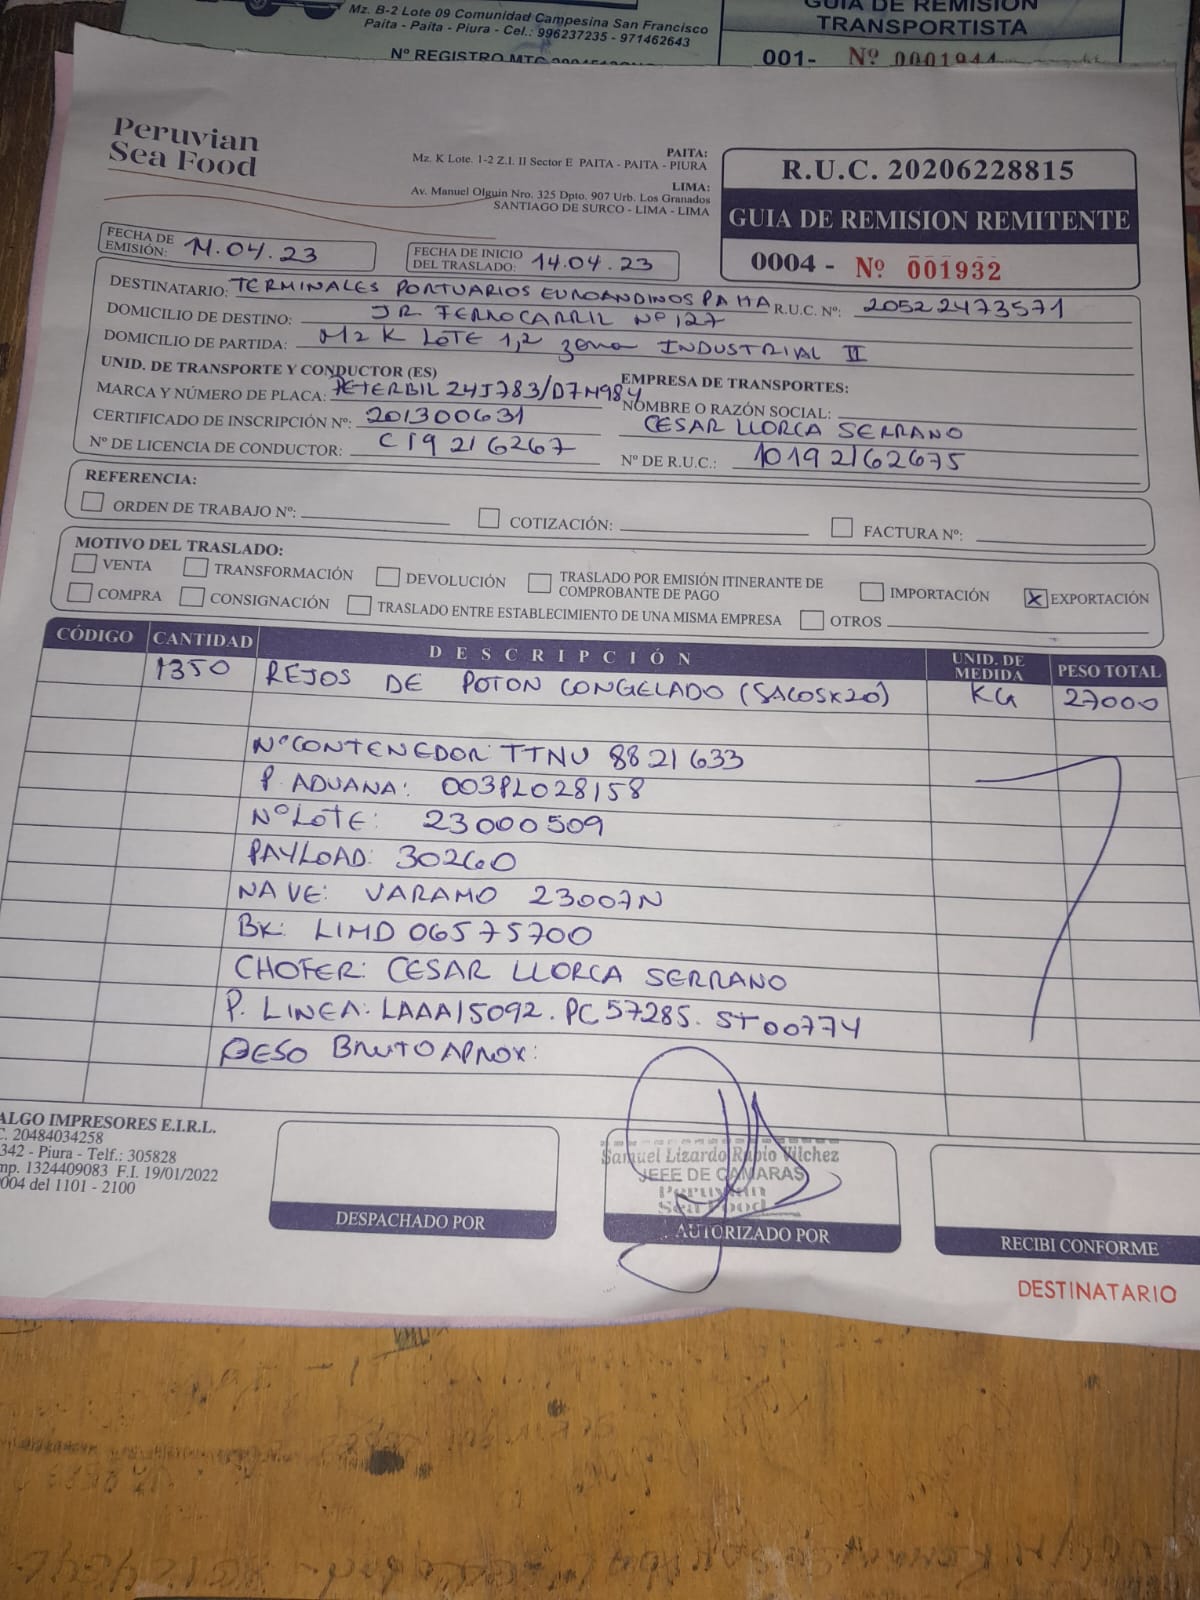 Mz. B-2 Lote 09 Comunidad Campesina San Francisco
Paita - Paita - Piura - Cel.: 996237235 - 971462643
Nº REGISTRO MTC
GUIA DE REMISION
TRANSPORTISTA
001- Nº 0001944
Peruvian
Sea Food
PAITA:
Mz. K Lote. 1-2 Z.I. II Sector E PAITA - PAITA - PIURA
LIMA:
Av. Manuel Olguin Nro. 325 Dpto. 907 Urb. Los Granados
SANTIAGO DE SURCO - LIMA - LIMA
R.U.C. 20206228815
GUIA DE REMISION REMITENTE
0004 - Nº 001932
FECHA DE EMISIÓN: 14.04.23
FECHA DE INICIO DEL TRASLADO: 14.04.23
DESTINATARIO: TERMINALES PORTUARIOS EUROANDINOS PAITA R.U.C. Nº: 20522473571
DOMICILIO DE DESTINO: JR. FERROCARRIL Nº 127
DOMICILIO DE PARTIDA: MZ K LOTE 1,2 zona INDUSTRIAL II
UNID. DE TRANSPORTE Y CONDUCTOR (ES)
MARCA Y NÚMERO DE PLACA: PETERBIL 24J783/D7N984
CERTIFICADO DE INSCRIPCIÓN Nº: 201300631
Nº DE LICENCIA DE CONDUCTOR: C19216267
EMPRESA DE TRANSPORTES:
NOMBRE O RAZÓN SOCIAL:
CESAR LLORCA SERRANO
Nº DE R.U.C.: 10192162675
REFERENCIA:
ORDEN DE TRABAJO Nº: COTIZACIÓN: FACTURA Nº:
MOTIVO DEL TRASLADO:
VENTA TRANSFORMACIÓN DEVOLUCIÓN TRASLADO POR EMISIÓN ITINERANTE DE COMPROBANTE DE PAGO IMPORTACIÓN X EXPORTACIÓN
COMPRA CONSIGNACIÓN TRASLADO ENTRE ESTABLECIMIENTO DE UNA MISMA EMPRESA OTROS
CÓDIGO CANTIDAD DESCRIPCIÓN UNID. DE MEDIDA PESO TOTAL
1350 REJOS DE POTON CONGELADO (SACOSX20) KG 27000
Nº CONTENEDOR: TTNU 8821633
P. ADUANA: 003PL028158
Nº LOTE: 23000509
PAYLOAD: 30260
NAVE: VARAMO 23007N
BK: LIMD 06575700
CHOFER: CESAR LLORCA SERRANO
P. LINEA: LAAA15092. PC57285. ST00774
PESO BRUTO APROX:
ALGO IMPRESORES E.I.R.L.
C. 20484034258
342 - Piura - Telf.: 305828
mp. 1324409083 F.I. 19/01/2022
004 del 1101 - 2100
DESPACHADO POR
Samuel Lizardo Rubio Vilchez
JEFE DE CAMARAS
Peruvian
Sea Food
AUTORIZADO POR
RECIBI CONFORME
DESTINATARIO